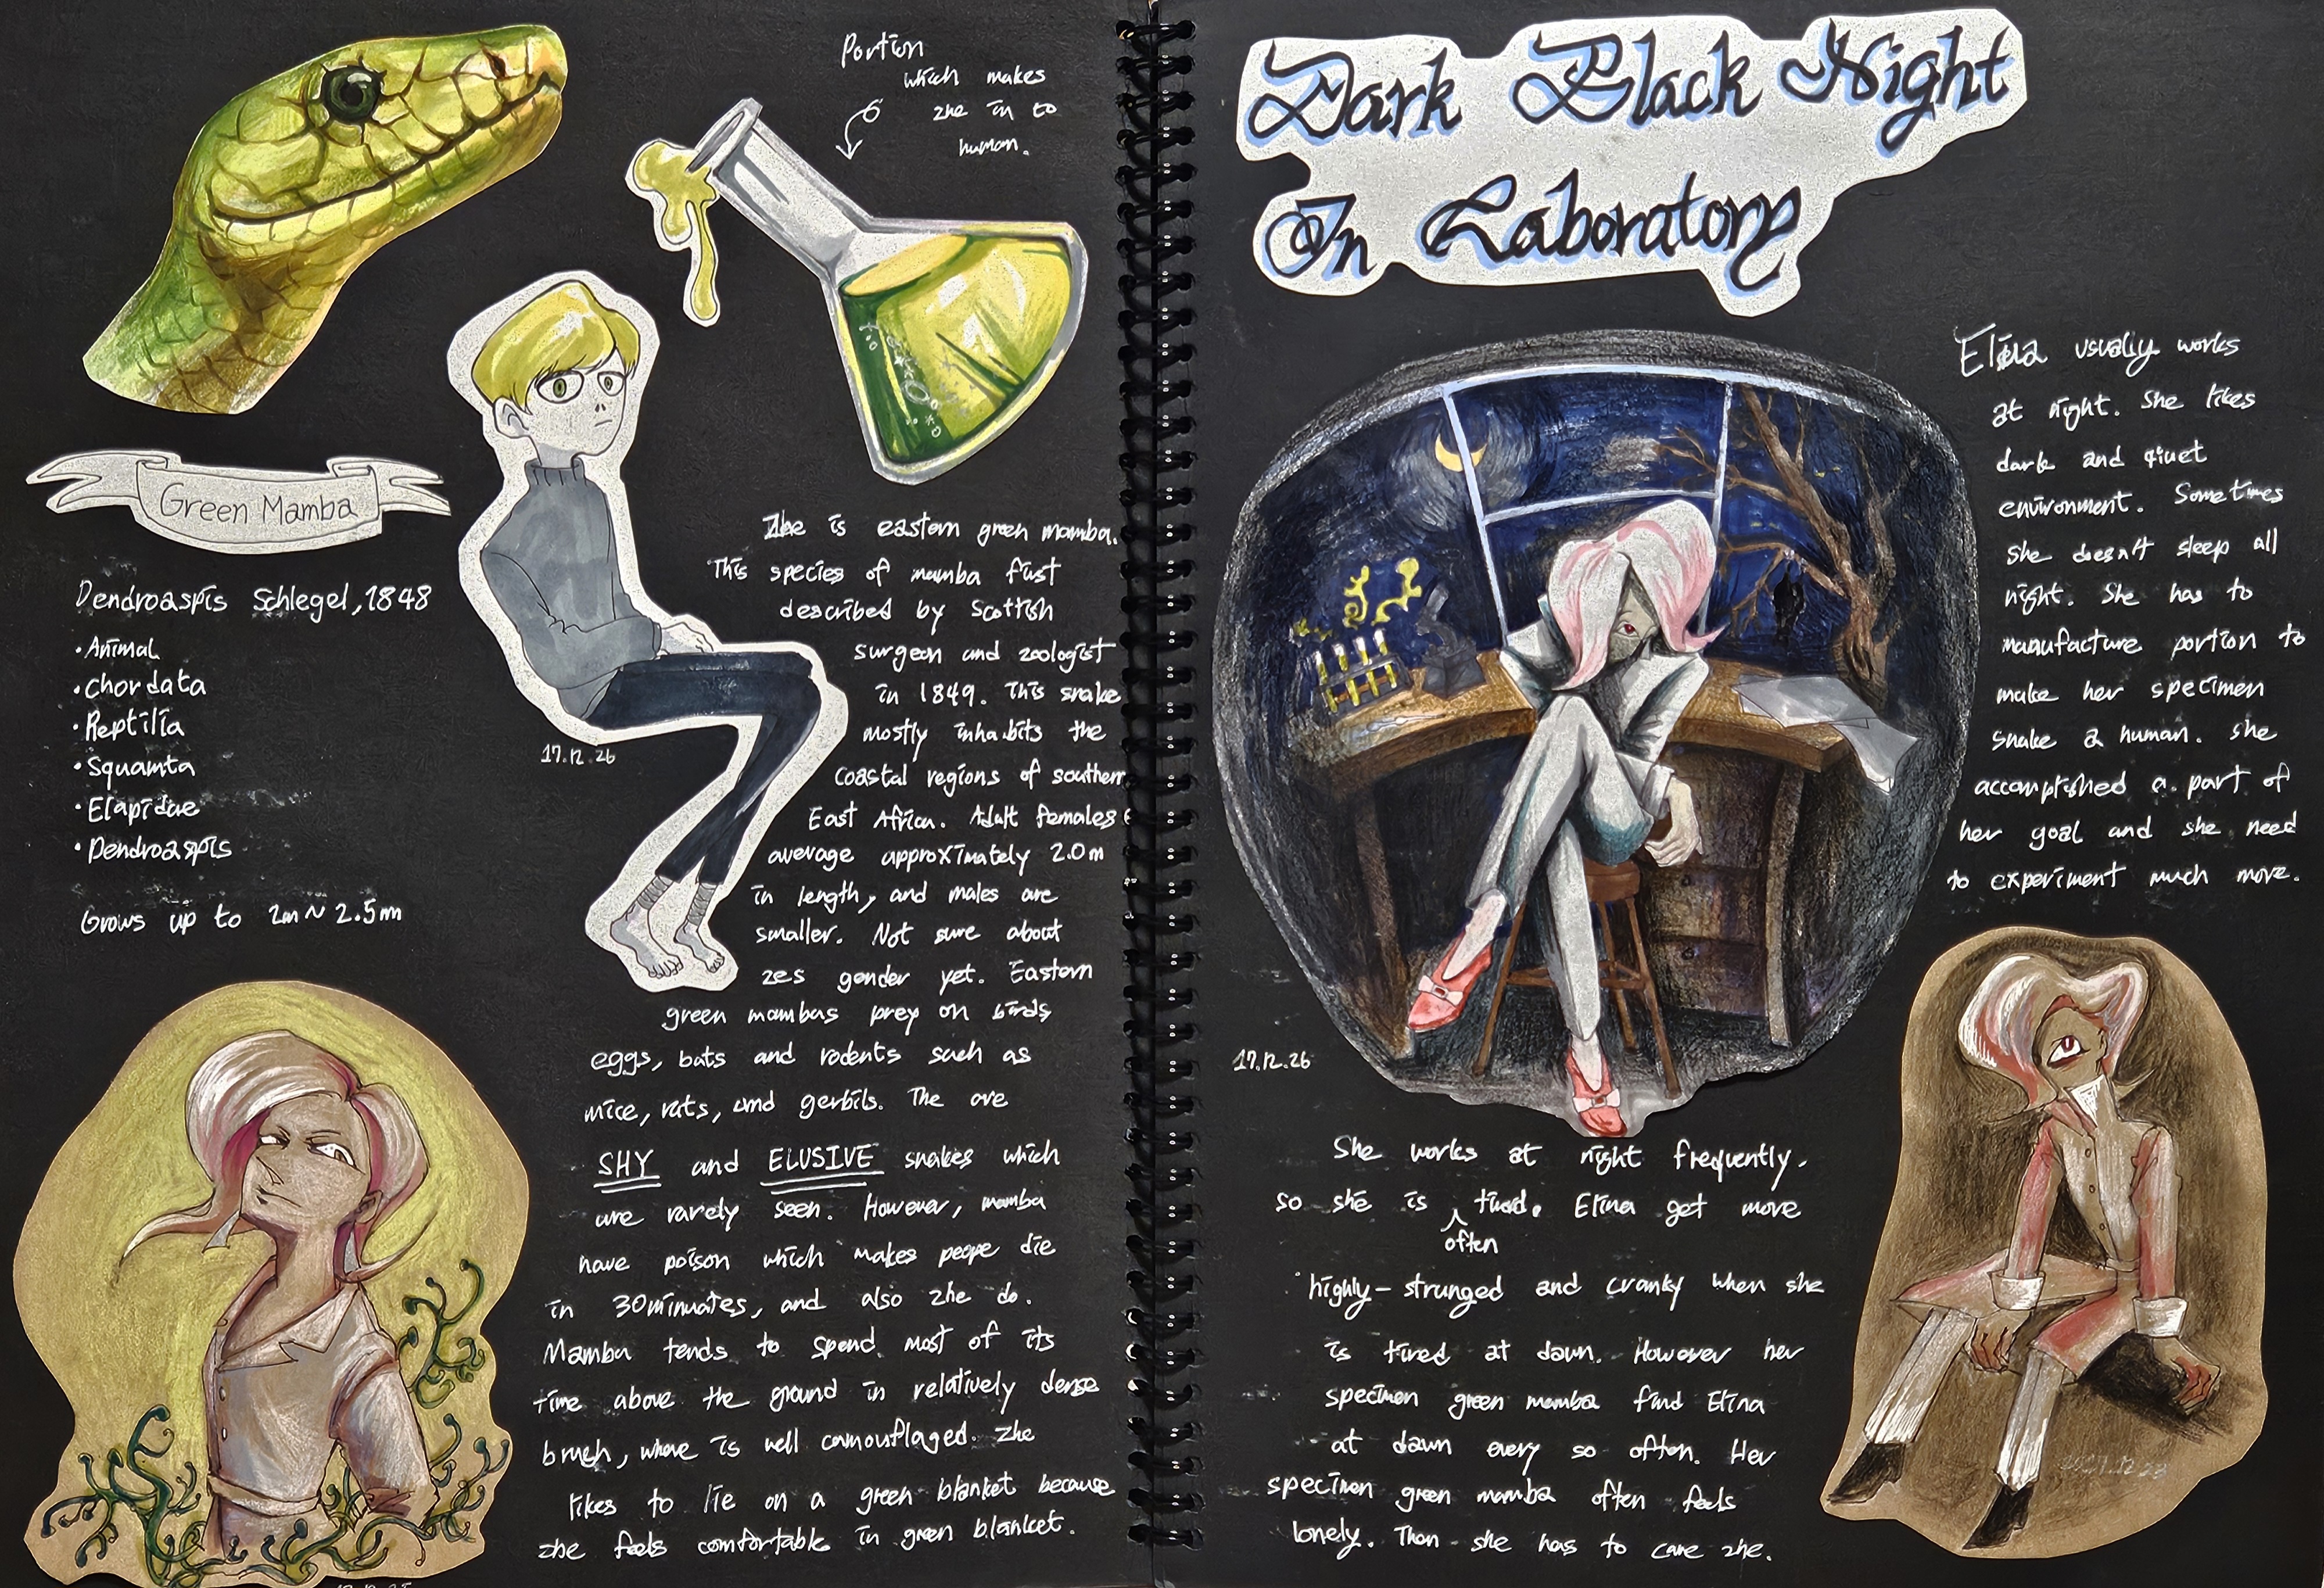 Portion
which makes
zhe in to
human.
Green Mamba
Dendroaspis Schlegel, 1848
• Animal
• Chordata
• Reptilia
• Squamta
• Elapidae
• Dendroaspis
Grows up to 2m~2.5m
17.12.26
Zhe is eastern green mamba.
This species of mamba first
described by Scottish
surgeon and zoologist
in 1849. This snake
mostly inhabits the
coastal regions of southern
East Africa. Adult females
average approximately 2.0m
in length, and males are
smaller. Not sure about
zes gender yet. Eastern
green mambas prey on birds
eggs, bats and rodents such as
mice, rats, and gerbils. The are
SHY and ELUSIVE snakes which
are rarely seen. However, mamba
have poison which makes peope die
in 30minuates, and also zhe do.
Mamba tends to spend most of its
time above the ground in relatively dense
brush, where is well camouflaged. Zhe
likes to lie on a green blanket because
zhe feels comfortable in green blanket.
Dark Black Night
In Laboratory
Elina usually works
at night. She likes
dark and qiuet
environment. Sometimes
she doesn't sleep all
night. She has to
manufacture portion to
make her specimen
snake a human. She
accomplished a part of
her goal and she need
to experiment much more.
17.12.26
She works at night frequently.
so she is often tired. Elina get more
highly-strunged and cranky when she
is tired at dawn. However her
specimen green mamba find Elina
at dawn every so often. Her
specimen green mamba often feels
lonely. Then she has to care zhe.